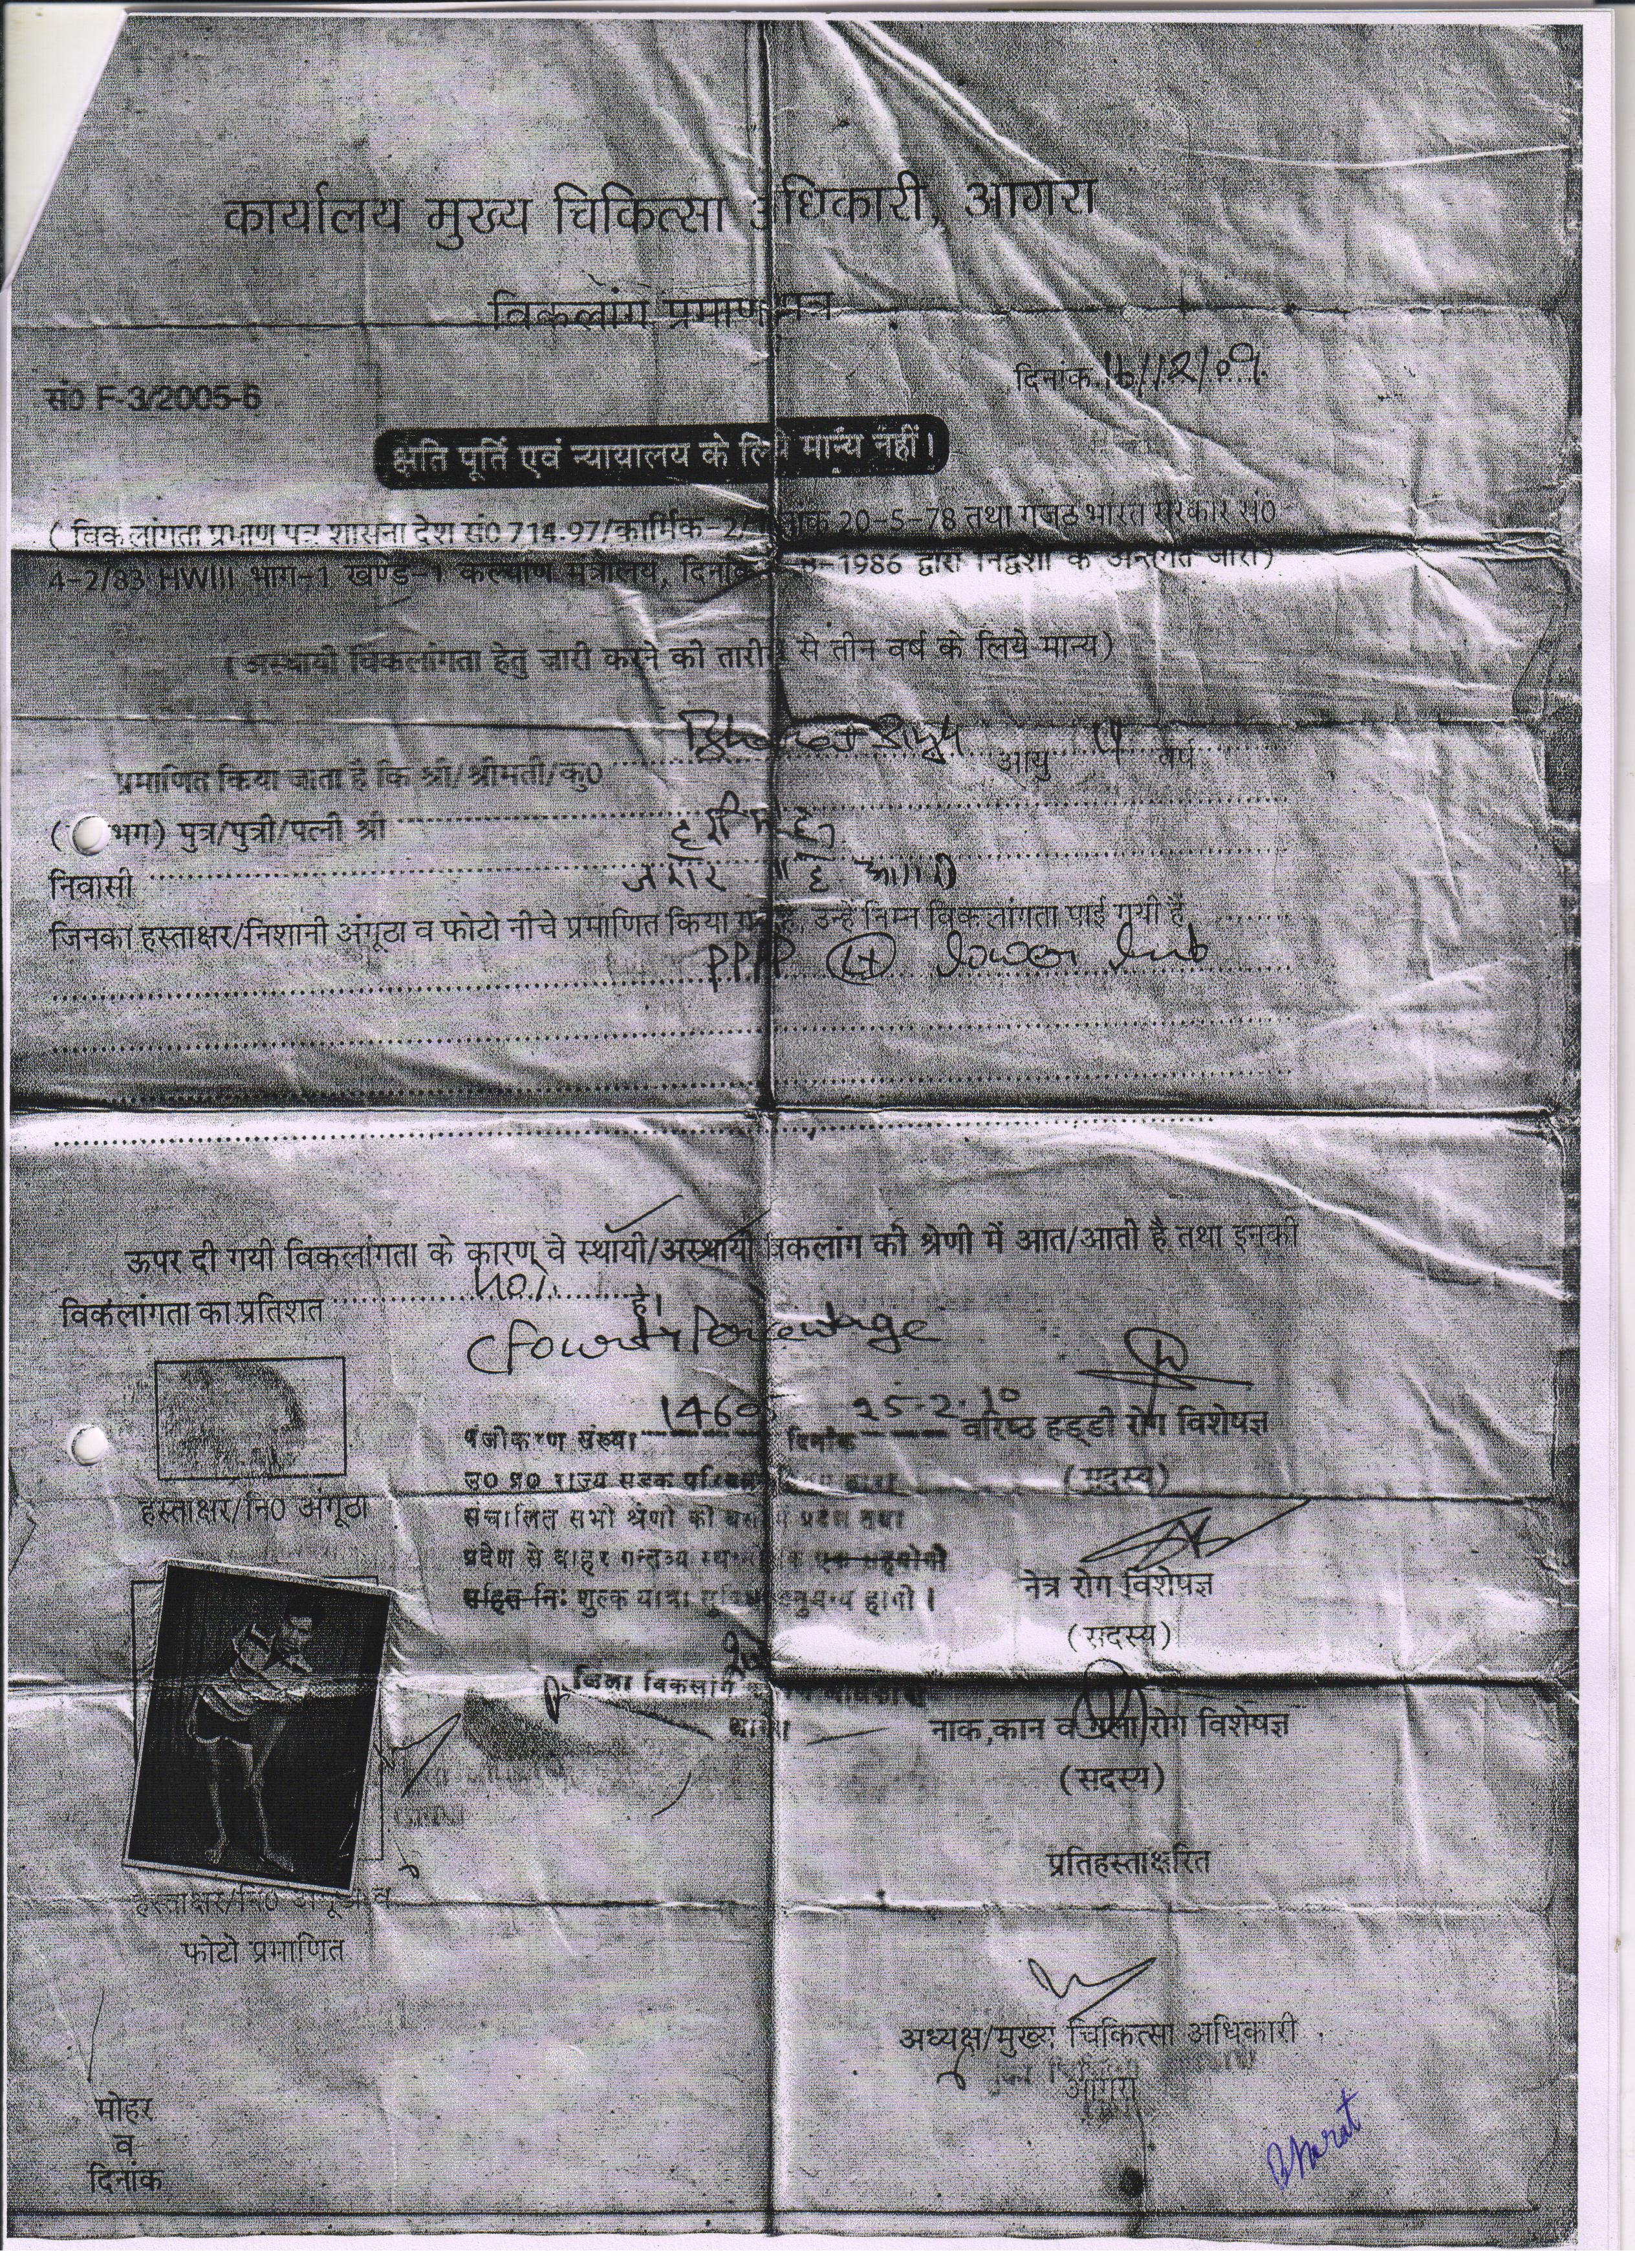 कार्यालय मुख्य चिकित्सा अधिकारी, आगरा
विकलांग प्रमाण पत्र
दिनांक 16/12/09
सं0 F-3/2005-6
क्षति पूर्ति एवं न्यायालय के लिये मान्य नहीं।
( विकलांगता प्रमाण पत्र शासना देश सं0 714-97/कार्मिक-2/ 20-5-78 तथा गजठ भारत सरकार सं0
4-2/83 HWIII भाग-1 खण्ड-1 कल्याण मंत्रालय, दिनांक -8-1986 द्वारा निर्द्देशो के अन्तर्गत जारी)
(अस्थायी विकलांगता हेतु जारी करने की तारीख से तीन वर्ष के लिये मान्य)
प्रमाणित किया जाता है कि श्री/श्रीमती/कु0 Bharat Singh आयु वर्ष
( भग) पुत्र/पुत्री/पत्नी श्री
निवासी
जिनका हस्ताक्षर/निशानी अंगूठा व फोटो नीचे प्रमाणित किया गया है, उन्हें निम्न विकलांगता पाई गयी है
PPRP Lt lower limb
ऊपर दी गयी विकलांगता के कारण वे स्थायी/अस्थायी विकलांग की श्रेणी में आत/आती है तथा इनकी
विकलांगता का प्रतिशत 40% है।
(Fourty Percentage
पंजीकरण संख्या 1460 दिनांक 25-2-10
वरिष्ठ हड्डी रोग विशेषज्ञ
(सदस्य)
उ0 प्र0 राज्य सडक परिवहन
संचालित सभी श्रेणी की प्रदेश तथा
प्रदेश से बाहर गन्तव्य
सहित निः शुल्क यात्रा होगी।
हस्ताक्षर/नि0 अंगूठा
नेत्र रोग विशेषज्ञ
(सदस्य)
जिला विकलांग
नाक,कान व गला रोग विशेषज्ञ
(सदस्य)
प्रतिहस्ताक्षरित
हस्ताक्षर/नि0 अंगूठा व
फोटो प्रमाणित
अध्यक्ष/मुख्य चिकित्सा अधिकारी
आगरा
मोहर
व
दिनांक
Bharat